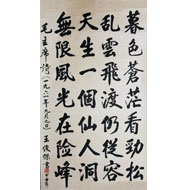 暮色蒼茫看勁松
亂雲飛渡仍從容
天生一個仙人洞
無限風光在險峰
毛主席詩(一九六一年九月九日) 王俊